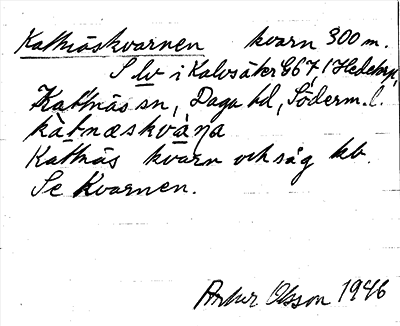 Kattnäskvarnen kvarn 300 m.
S lv i Kalvsåker G67, (Hedekp,
Kattnäs sn, Daga hd, Söderm. l.
kàtnæskváṇa
Kattnäs kvarn och såg kb.
Se Kvarnen.
Artur Olsson 1946